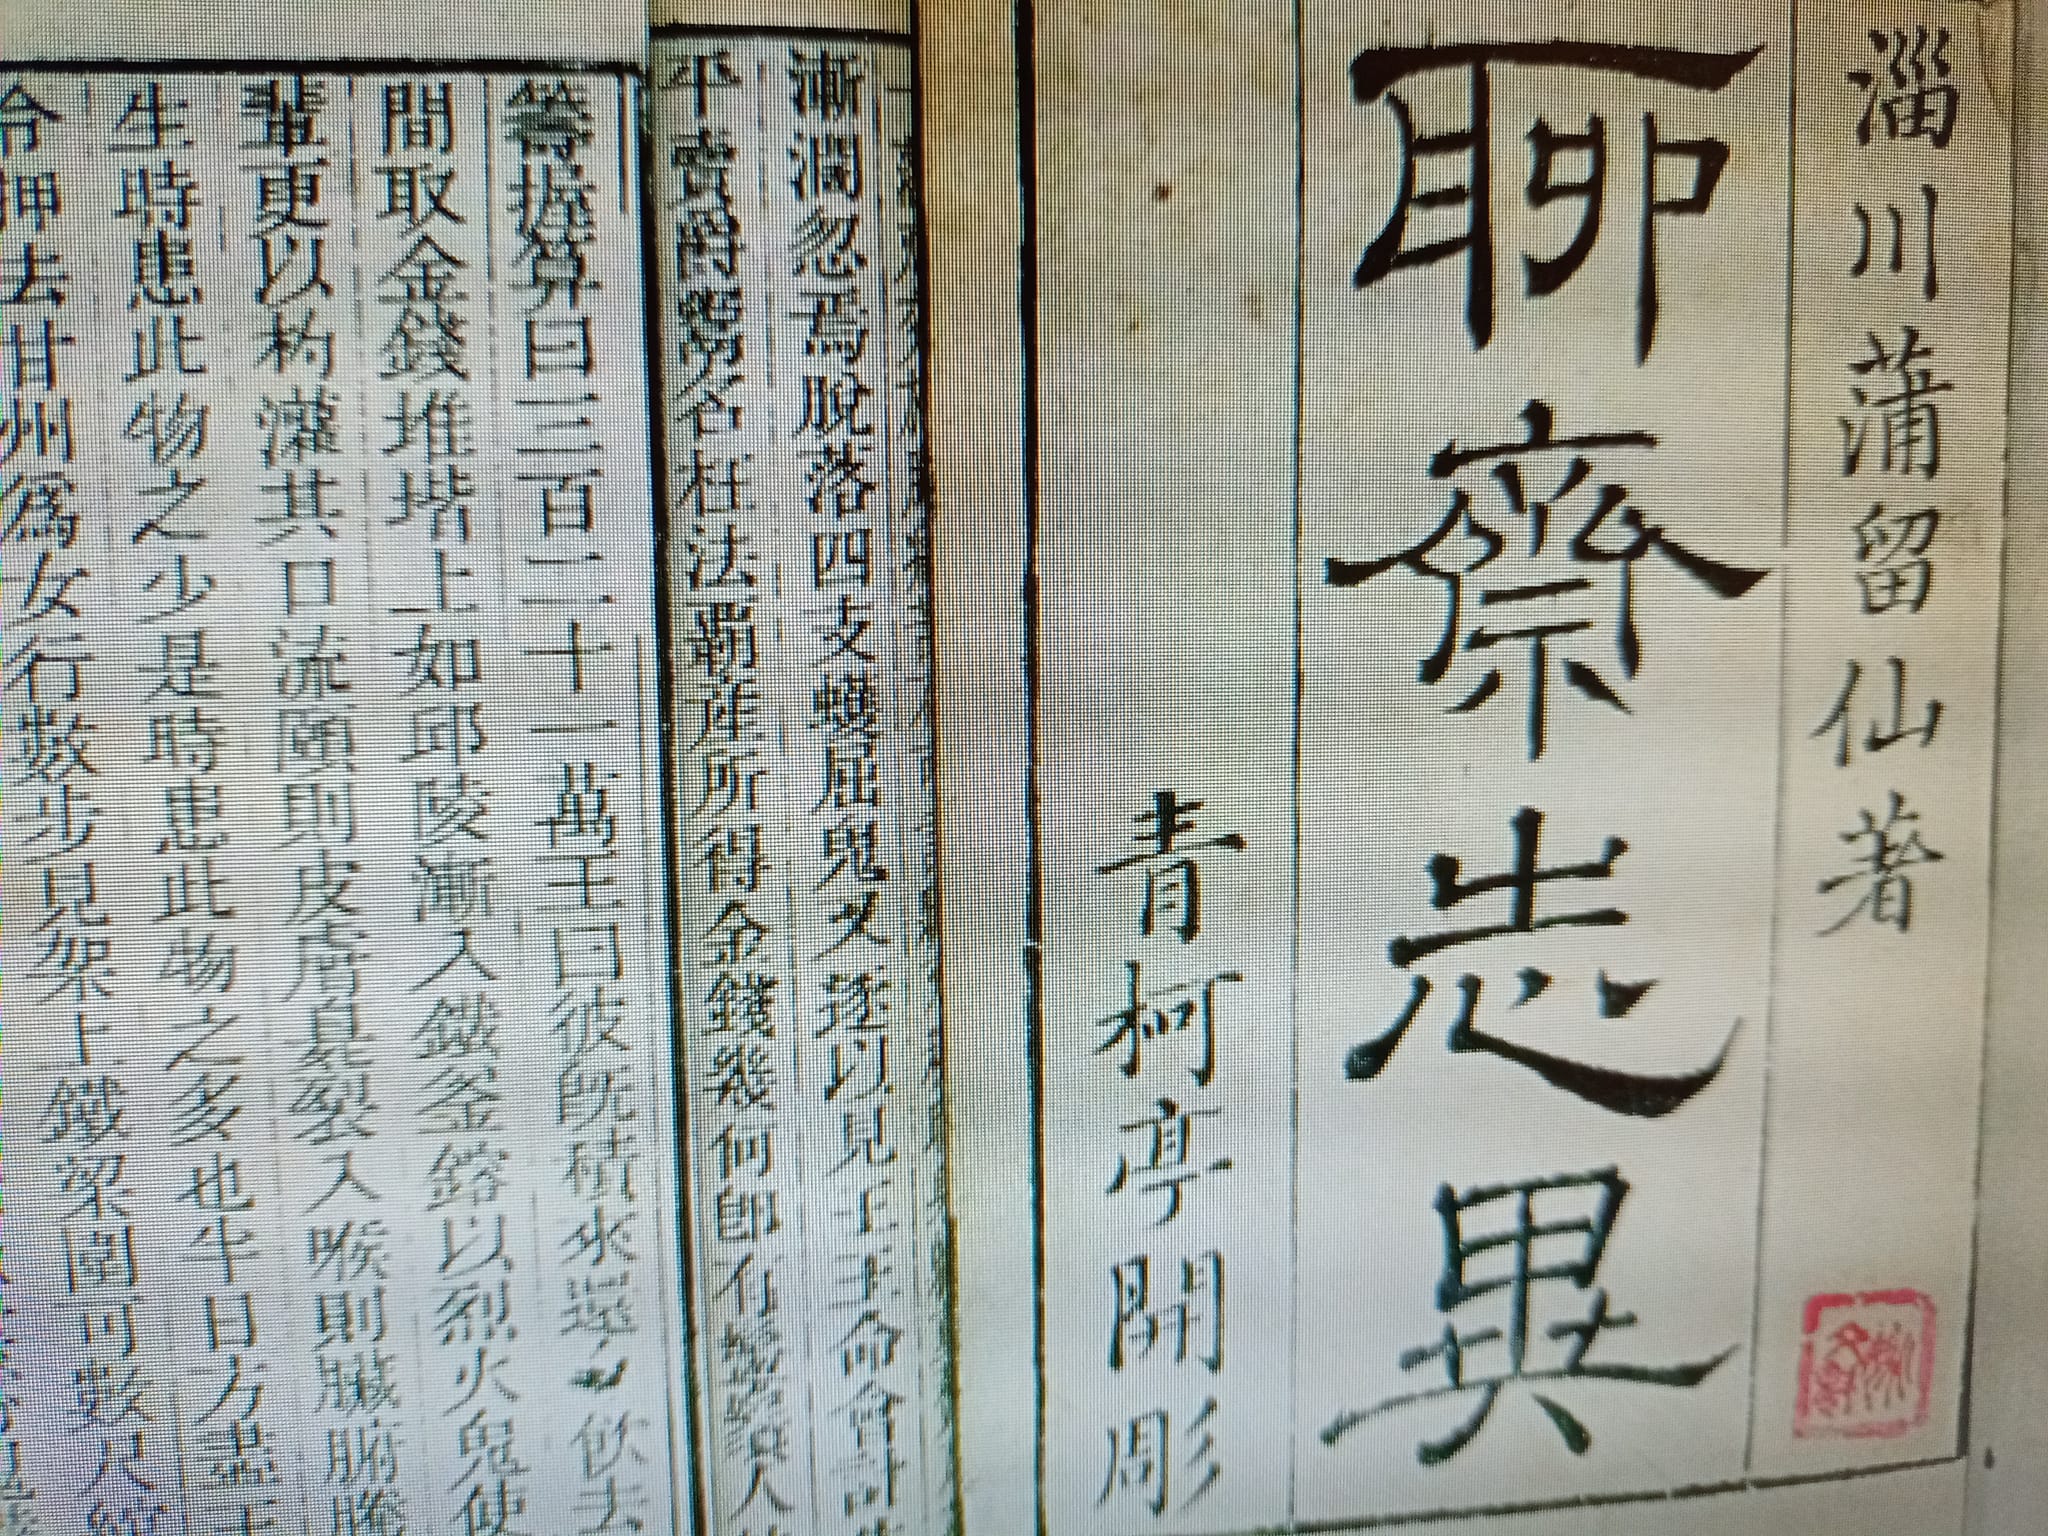 淄川蒲留仙著
聊齋志異
青柯亭開彫
漸潤忽焉脫落四支蠖屈鬼又逐以見王王命會計
平賣爵鬻名枉法霸產所得金錢幾何即有鬡鬚人
籌握算曰三百二十一萬王曰彼旣積來還令飲去
間取金錢堆堦上如邱陵漸入鐵釜鎔以烈火鬼使
輩更以杓灌其口流頤則皮膚臭裂入喉則臟腑騰
生時患此物之少是時患此物之多也半日方盡王
令押去甘州爲女行數步見架上鐵梁圍可數尺